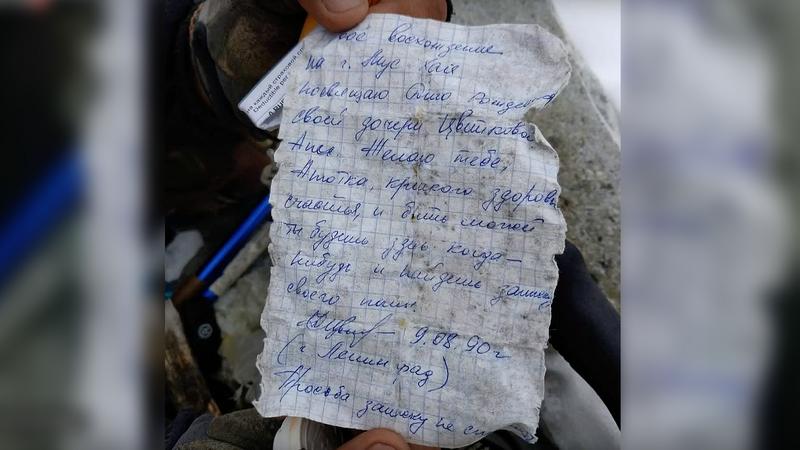 восхождение
на г. Мус Хая
посвящаю Дню рожден
своей дочери Цветковой
Ане. Желаю тебе,
Анютка, крпкого здоровь
счастья, и быть может
ты будешь здсь когда-
нибудь и найдешь записку
своего папы.
9.08.90г
(г Ленинград)
Просьба записку не
на каждый страховой
Deductible per